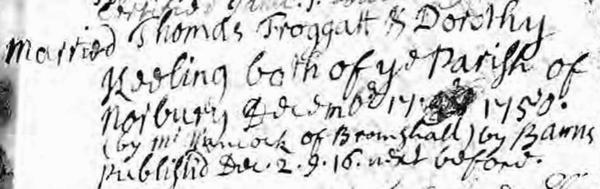 Married Thomas Froggatt & Dorothy
Keeling both of ye Parish of
Norbury Decembe 17 1750.
(by Mr Hancock of Bromshall) by Banns
Publish'd Dec. 2. 9. 16. next before.